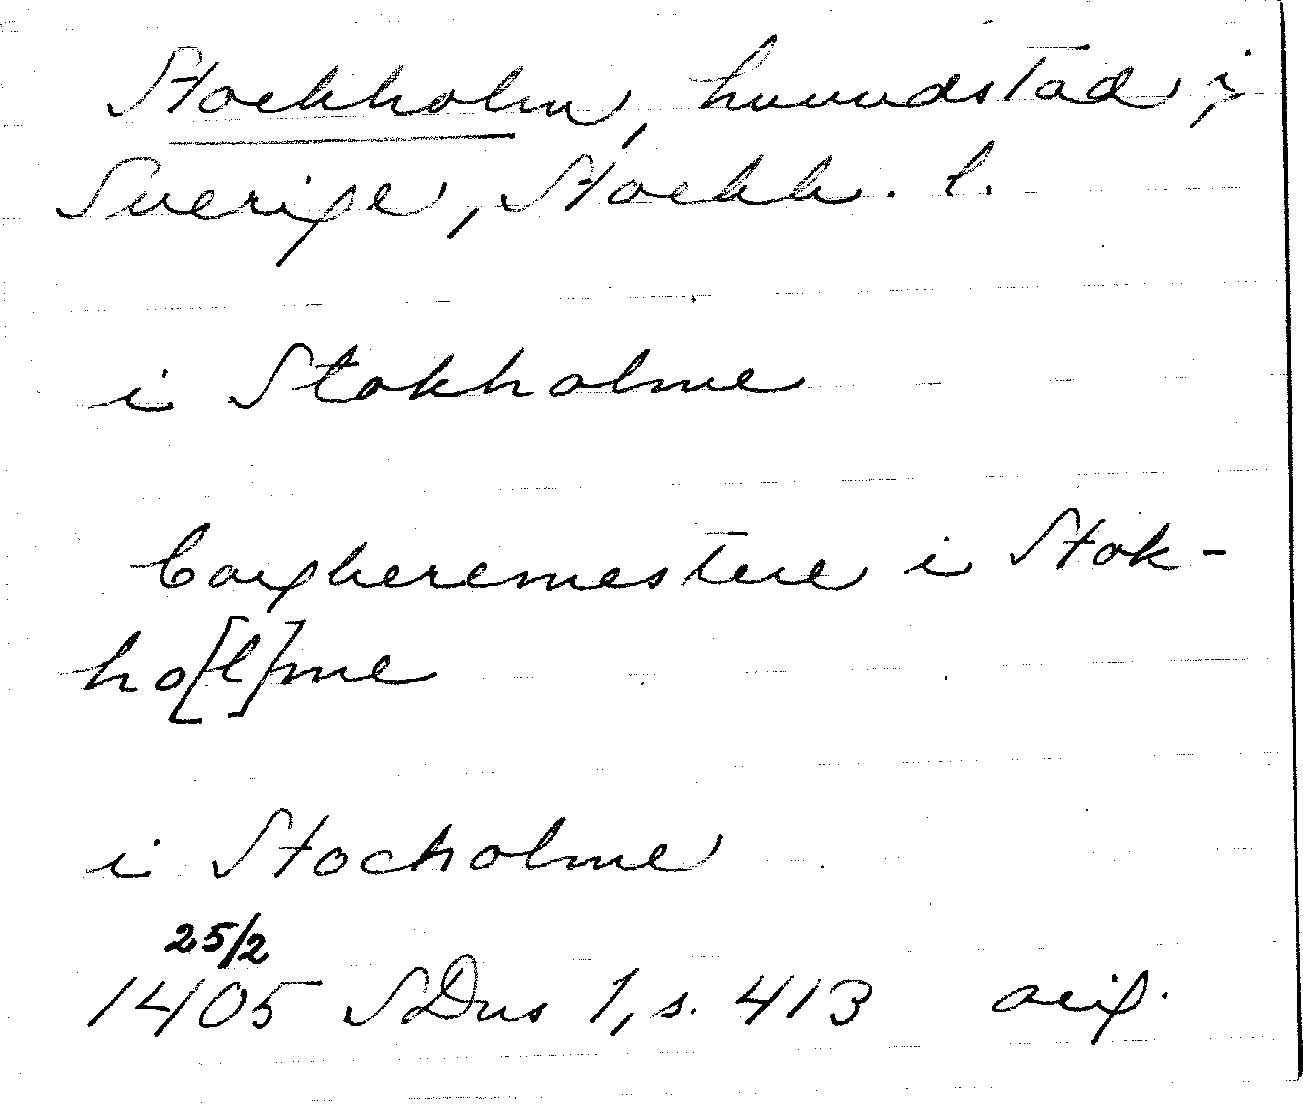 Stockholm, huvudstad i
Sverige, Stockh. l.
i Stokholme
borgheremestere i Stok-
ho[l]me
i Stocholme
25/2
1405 SDns 1, s. 413 orig.